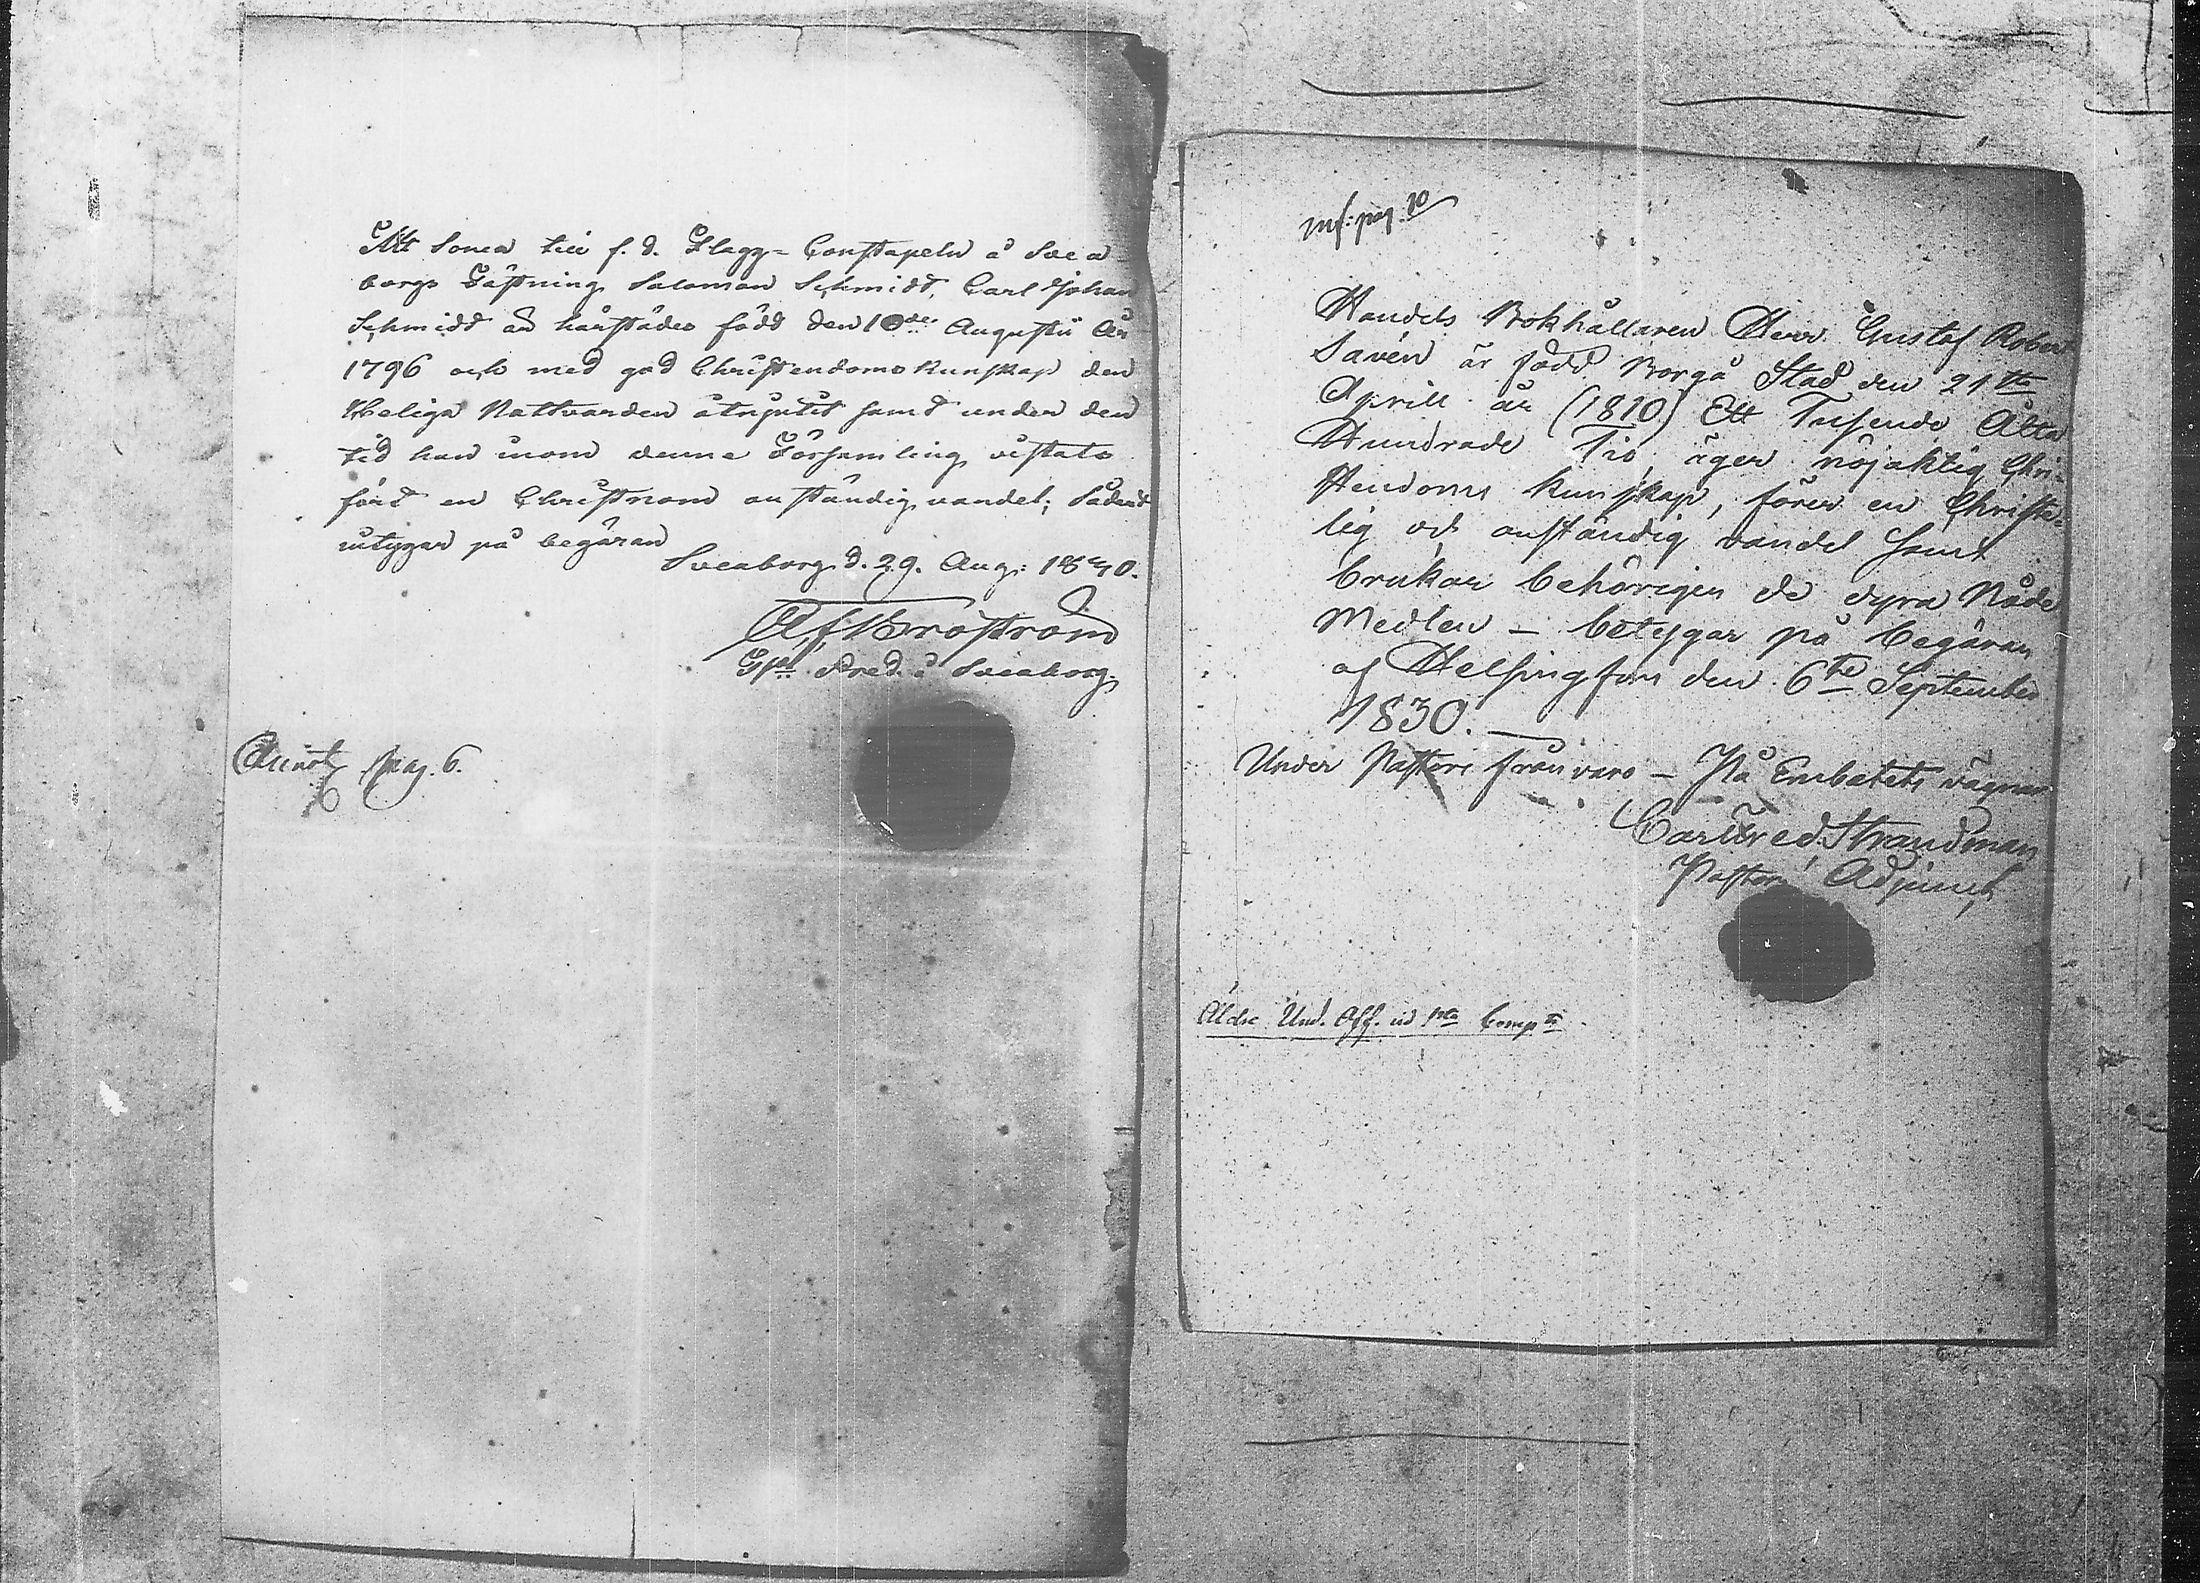 Att Sonen till f. d. Flagg-Constapeln å Svea-
borgs Fästning Salomon Schmidt, Carl Johan
Schmidt är härstädes född den 10de Augusti År
1796 och med god Christendoms kunskap den
Heliga Nattvarden åtnjutit samt under den
tid han inom denna Församling vistats
fört en Christnom anständig vandel; Sådant
intygar på begäran
Sveaborg d. 29. Aug: 1830.
Broström
Pred. å Sveaborg.
Annot. pag. 6.
inf: pag. 10
Handels Bokhållaren Herr Gustaf Robert
Savén är född Borgå Stad den 21ta
Aprill år (1810) Ett Tusende Åtta
Hundrade Tio, äger nöjaktig Chri-
stendoms kunskap, förer en Christe-
lig och anständig vandel samt
brukar behörigen de dyra Nåde
Medlen – betygar på begäran
af Helsingfors den 6te September
1830.
Under Pastors frånvaro – På Embetets vägnar
Carl Fred. Strandman
Pastors Adjunct
Äldre Und. Off. vid 1ta Comp